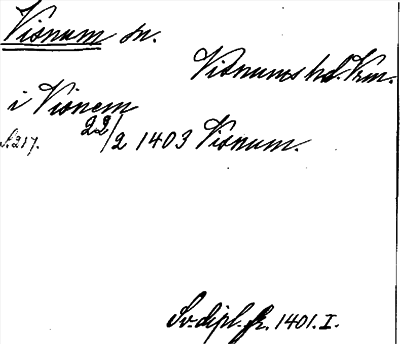 Visnum sn.
Visnums hd. Vrm.
i Visnem
s. 217. 22/2 1403 Visnum.
Sv. dipl. fr. 1401. I.